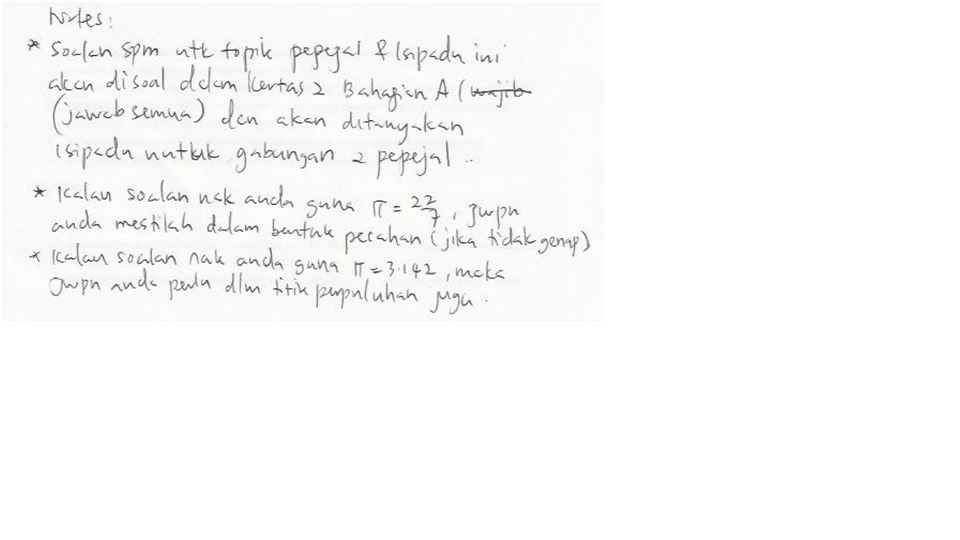 Notes:
* Soalan spm utk topik pepejal & Isipadu ini
akan disoal dalam Kertas 2 Bahagian A (wajib
(jawab semua) dan akan ditanyakan
isipadu untuk gabungan 2 pepejal ..
* Kalau soalan nak anda guna π = 22/7, jwpn
anda mestilah dalam bentuk pecahan (jika tidak genap)
* Kalau soalan nak anda guna π = 3.142, maka
Jwpn anda perlu dlm titik perpuluhan juga.